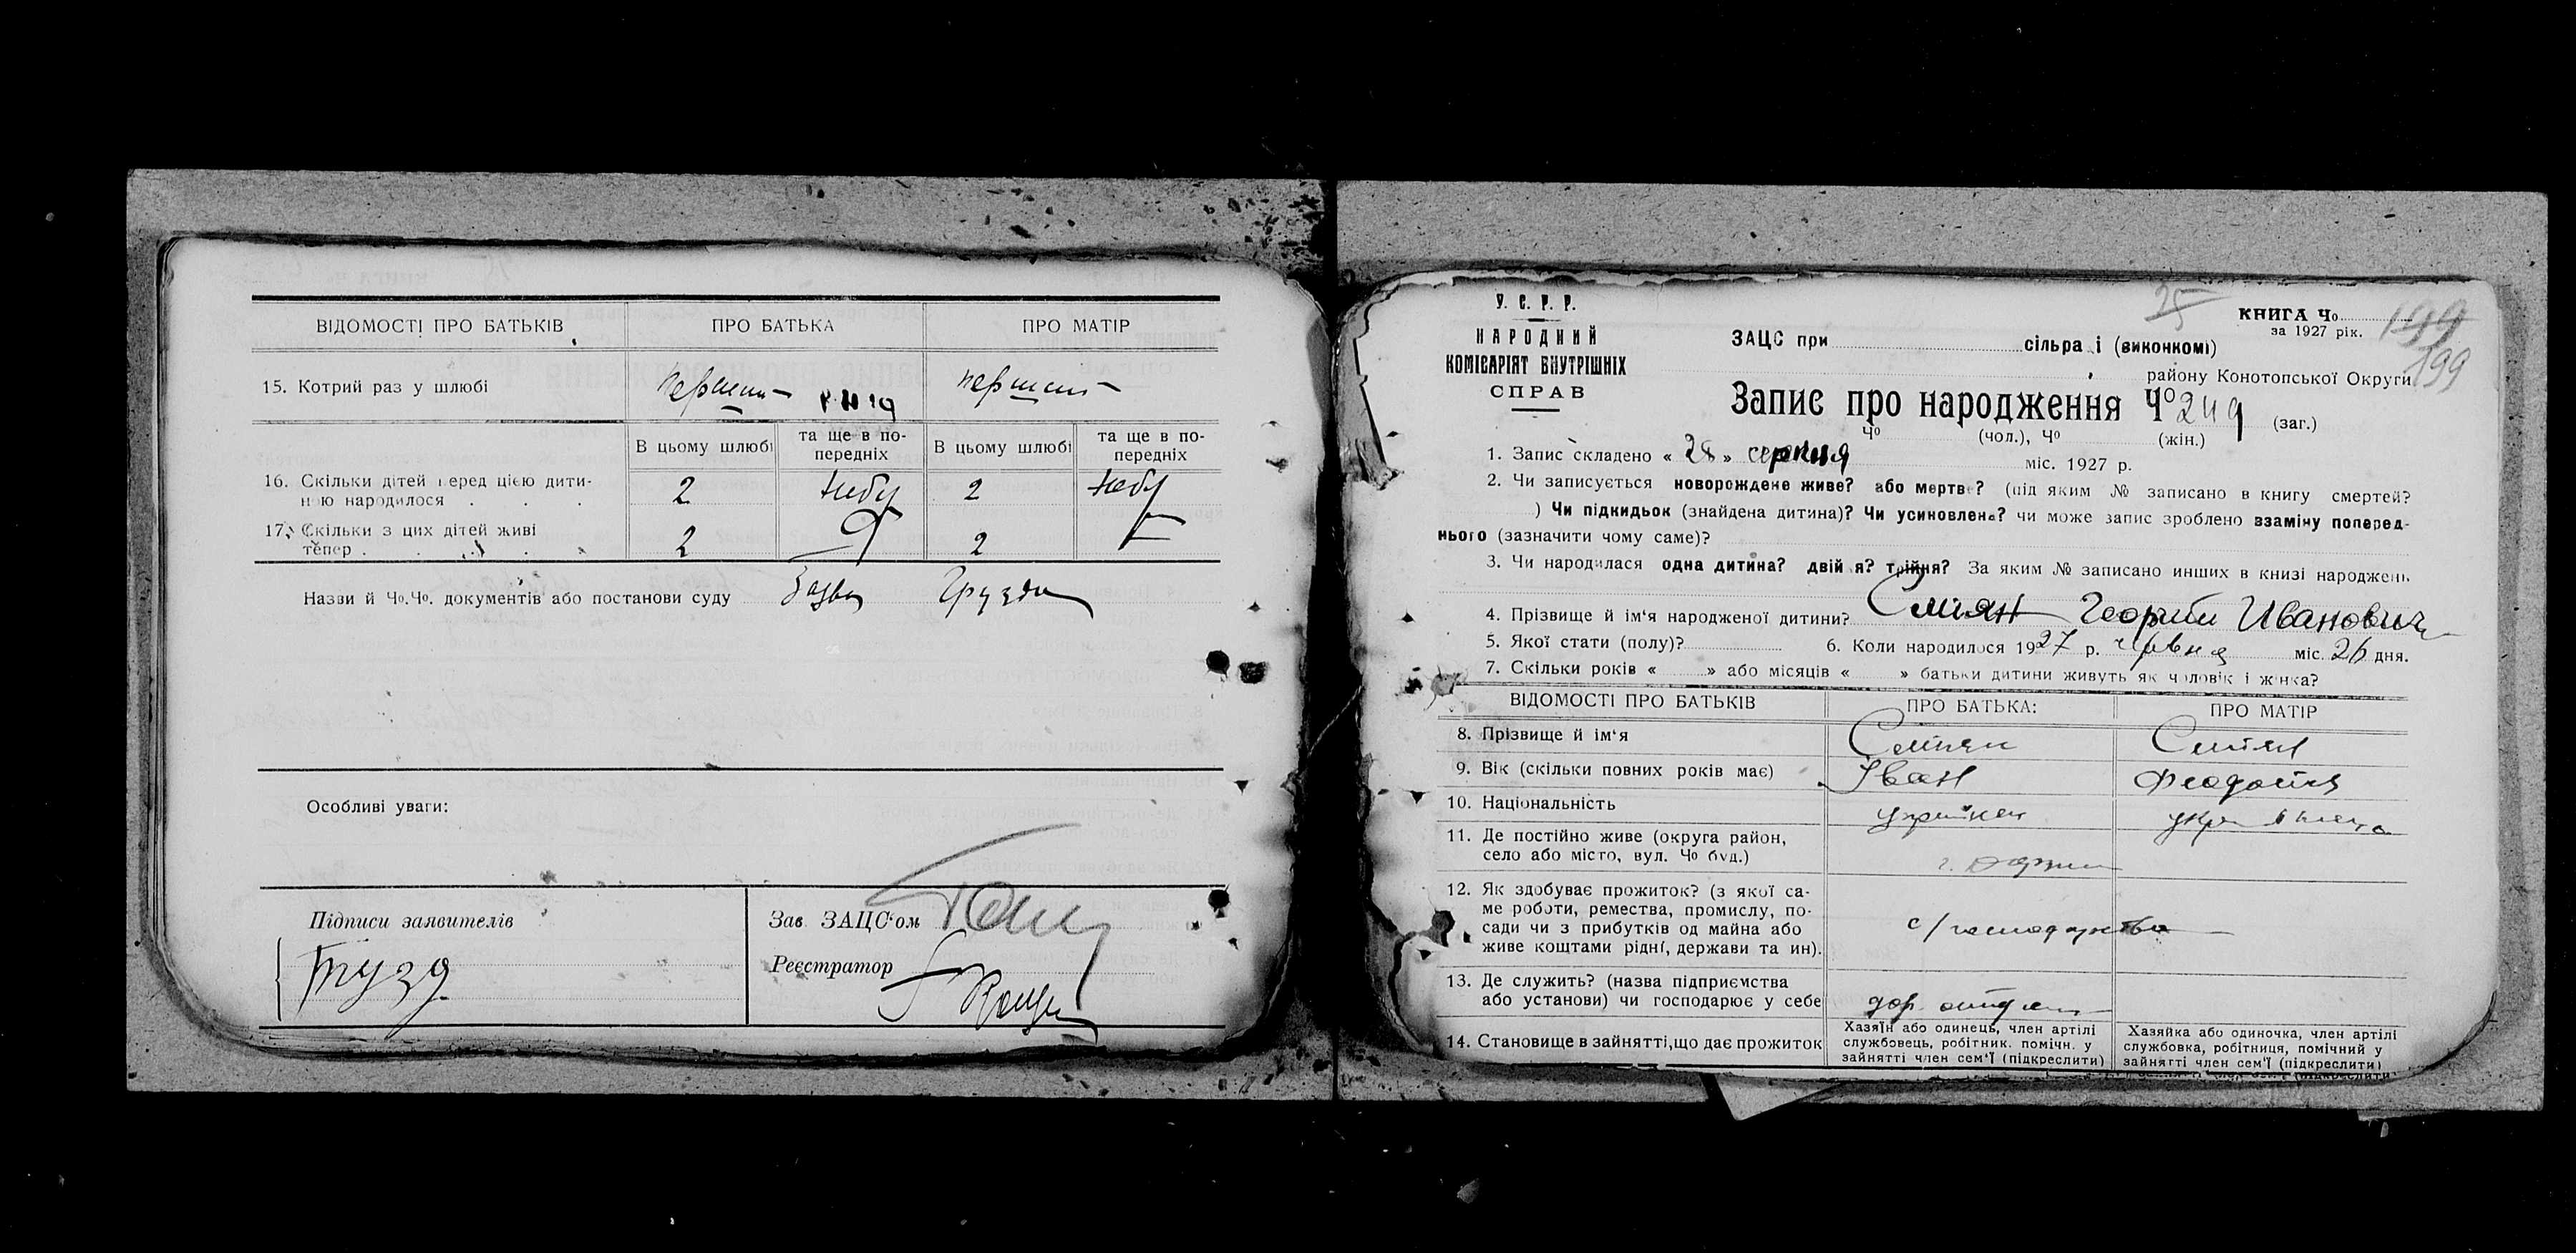 ВІДОМОСТІ ПРО БАТЬКІВ ПРО БАТЬКА ПРО МАТІР
15. Котрий раз у шлюбі
В цьому шлюбі та ще в по-передніх В цьому шлюбі та ще в по-передніх
16. Скільки дітей перед цією дити-
ною народилося . . . 2 2
17. Скільки з цих дітей живі
тепер . . . . 2 2
Назви й Чо.Чо. документів або постанови суду
Особливі уваги:
Підписи заявителів
Зав ЗАЦС'ом
Реєстратор
У. С. Р. Р.
НАРОДНИЙ
КОМІСАРІЯТ ВНУТРІШНІХ
СПРАВ
25
КНИГА Чо
за 1927 рік.
199
199
ЗАЦС при сільра і (виконкомі)
району Конотопської Округи
Запис про народження Чо 249 (заг.)
Чо (чол.), Чо (жін.)
1. Запис складено « 28 » серпня міс. 1927 р.
2. Чи записується новорождене живе? або мертве? (під яким № записано в книгу смертей?
) Чи підкидьок (знайдена дитина)? Чи усиновлена? чи може запис зроблено взаміну поперед-
нього (зазначити чому саме)?
3. Чи народилася одна дитина? двійня? трійня? За яким № записано инших в книзі народжень
4. Прізвище й ім'я народженої дитини? Сміян Георгий Иванович
5. Якої стати (полу)? 6. Коли народилося 1927 р. червня міс. 26 дня.
7. Скільки років « » або місяців « » батьки дитини живуть як чоловік і жінка?
ВІДОМОСТІ ПРО БАТЬКІВ ПРО БАТЬКА: ПРО МАТІР
8. Прізвище й ім'я Сміян Сміян
9. Вік (скільки повних років має) Іван
10. Національність
11. Де постійно живе (округа район,
село або місто, вул. Чо буд.)
12. Як здобуває прожиток? (з якої са-
ме роботи, ремества, промислу, по-
сади чи з прибутків од майна або
живе коштами рідні, держави та ин). с/господарство
13. Де служить? (назва підприємства
або установи) чи господарює у себе
14. Становище в зайнятті, що дає прожиток
Хазяїн або одинець, член артілі
службовець, робітник. помічн. у
зайнятті член сем'ї (підкреслити)
Хазяйка або одиночка, член артілі
службовка, робітниця, помічний у
зайнятті член сем'ї (підкреслити)